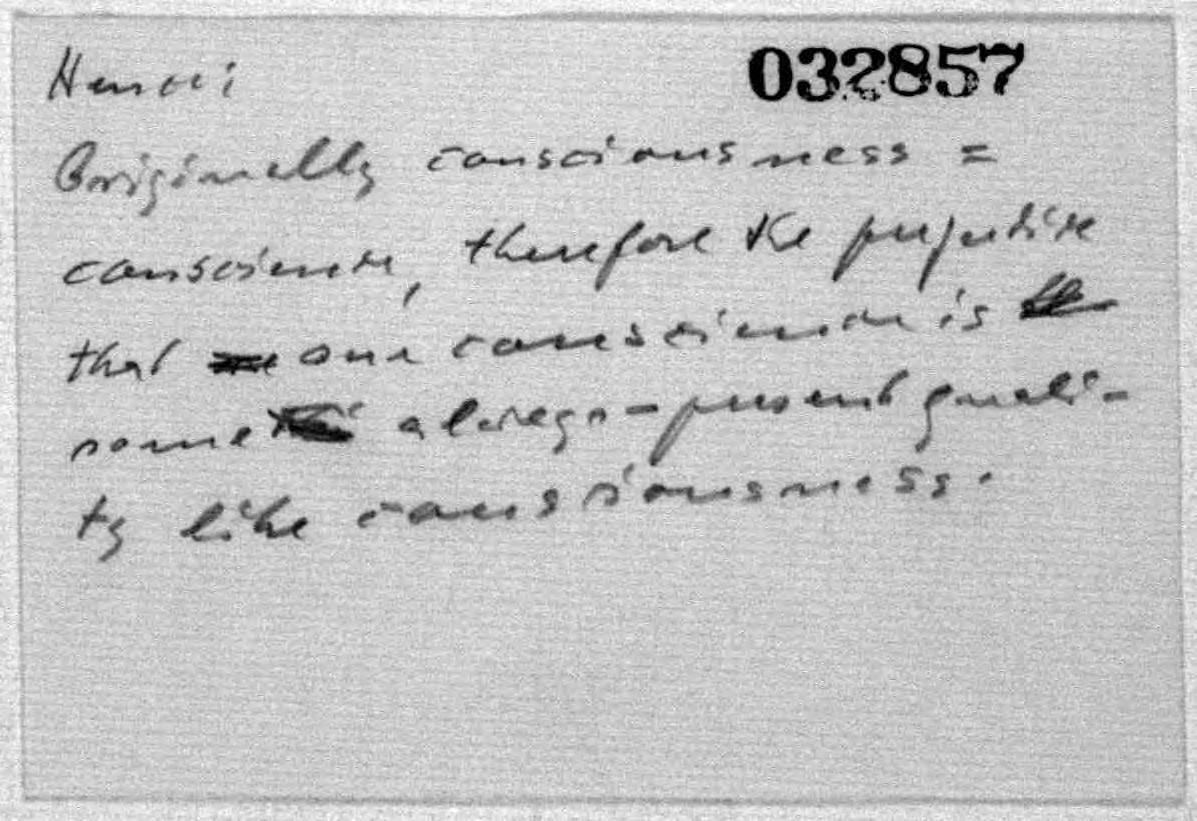 032857
Originally consciousness =
conscience, therefore the prejudice
that our conscience is
some always-present quali-
ty like consciousness.